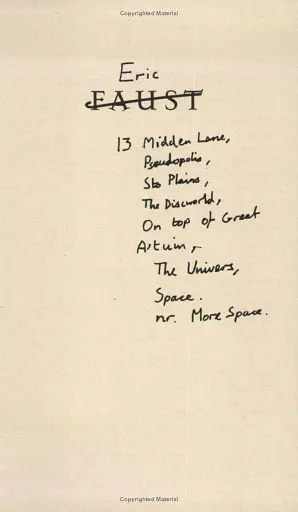 Copyrighted Material
Eric
FAUST
13 Midden Lane,
Pseudopolis,
Sto Plains,
The Discworld,
On top of Great
A'tuin,
The Univers,
Space.
nr. More Space.
Copyrighted Material